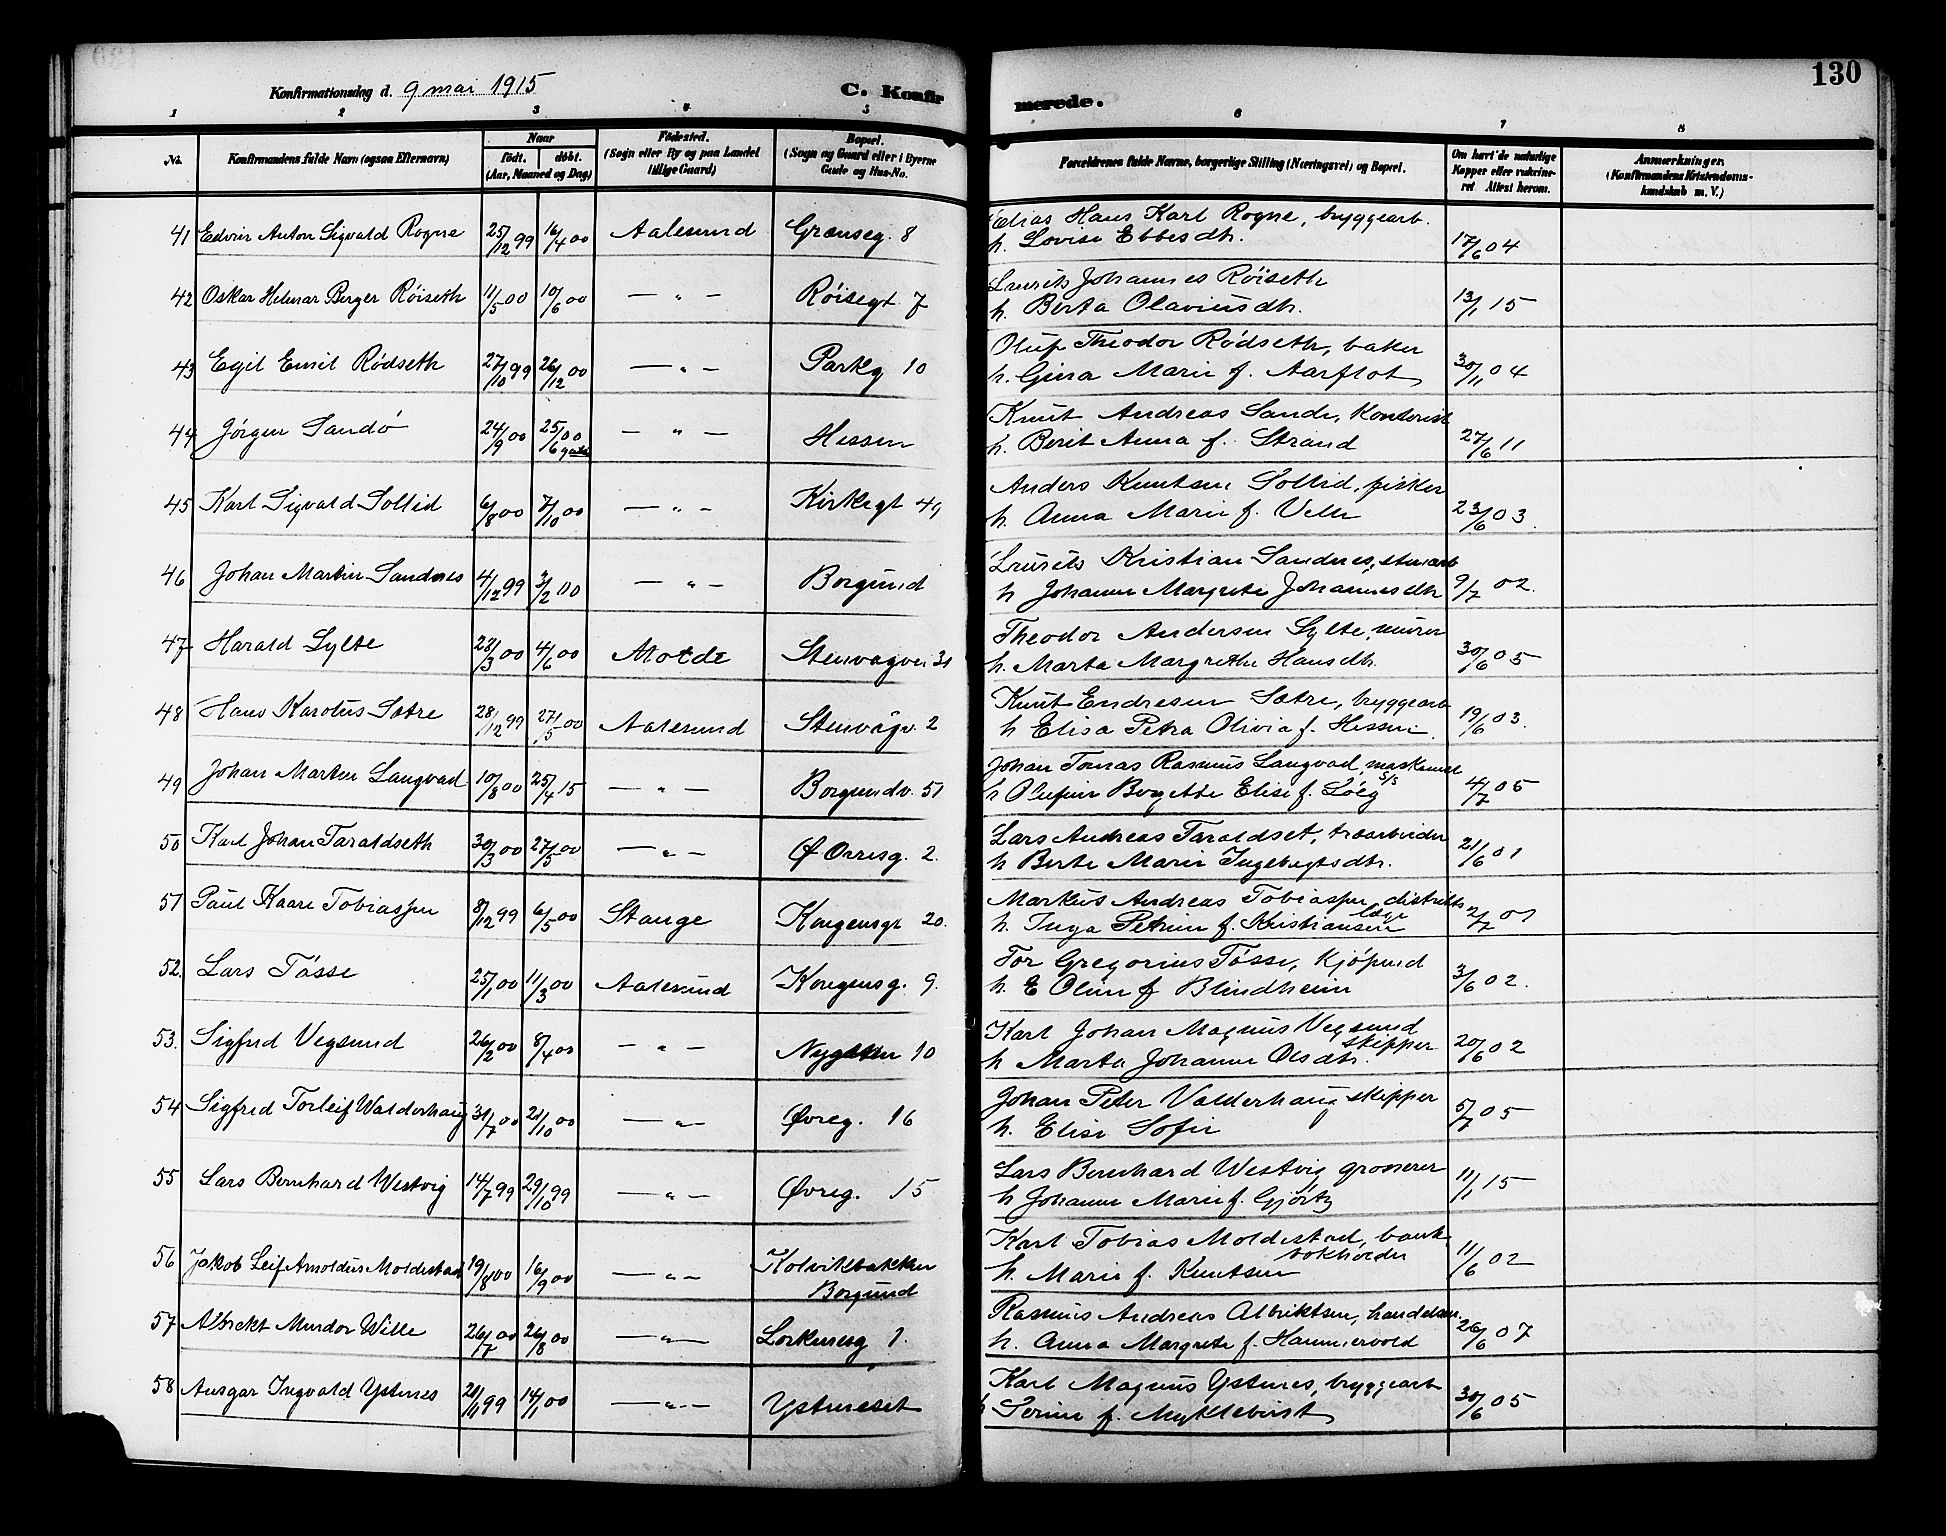 130
Konfirmationsdag d. 9 mai 1915 C. Konfirmerede.
1 2 3 4 5 6 7 8
No. Konfirmandens fulde Navn (ogsaa Efternavn) Naar født. døbt. (Aar, Maaned og Dag) Fødested. (Sogn eller By og paa Landet tillige Gaard) Bopæl. (Sogn og Gaard eller i Byerne Gade og Hus-No. Forældrenes fulde Navne, borgerlige Stilling (Næringsvei) og Bopæl. Om havt de naturlige Kopper eller vakcineret Attest herom. Anmærkninger. (Konfirmandens Kristendomskundskab m. V.)
41 Edvin Anton Sigvald Rogne 25/12 99 16/4 00 Aalesund Grænseg. 8 Elias Hans Karl Rogne, bryggearb.
h. Lovise Ebbesdtr. 17/6 04
42 Oskar Helmar Berger Röiseth 11/5 00 10/6 00 — " — Röisegt 7 Laurits Johannes Röiseth
h. Berta Olaviusdtr. 13/1 15
43 Egil Emil Rödseth 27/10 99 26/12 00 — " — Parkg 10 Oluf Theodor Rödseth, baker
h. Gina Marie f. Aarflot 30/11 04
44 Jörgen Sandö 24/9 00 25/6 00 — " — Hessen Knut Andreas Sande, kontorist
h. Berit Anna f. Strand 27/6 11
45 Karl Sigvald Sollid 6/8 00 7/10 00 — " — Kirkegt 49 Anders Knutsen Sollid, fisker
h. Anna Marie f. Velle 23/6 03.
46 Johan Martin Sandnes 4/12 99 3/2 00 — " — Borgund Laurits Kristian Sandnes, stenarb
h Johanne Margrete Johannesdtr 9/7 02.
47 Harald Sylte 28/3 00 4/6 00 Molde Stenvagve. 31 Theodor Andersen Sylte, murer
h. Marta Margrethe Hansdtr. 30/6 05
48 Hans Karolus Sætre 28/12 99 27/5 00 Aalesund Stenvågv. 2 Knut Endresen Sætre, bryggearb
h Elisa Petra Olivia f. Hessen. 19/6 03.
49 Johan Martin Langvad 10/8 00 25/4 15 — " — Borgundv. 51 Johan Tomas Rasmus Langvad, maskinist s/s
h Olufine Bergitte Elise f. Löeg 4/7 05
50 Karl Johan Taraldseth 30/3 00 27/5 00 — " — Ø Orresg. 2. Lars Andreas Taraldset, træarbeider
h Berte Marie Ingebrigtsdtr. 21/6 01
51 Paul Kaare Tobiassen 8/12 99 6/5 00 Stange Kongensgt 20. Markus Andreas Tobiassen, distriktslæge
h. Inga Petrine f. Kristiansen 2/7 01
52. Lars Tösse 25/1 00 11/3 00 Aalesund Kongensg. 9. Tor Gregorius Tösse, kjöpmd
h. E Oline f Blindheim 3/6 02.
53. Sigfrid Vegsund 26/2 00 8/4 00 — " — Nygaten 10 Karl Johan Magnus Vegsund skipper
h Marta Johanne Olsdtr. 20/6 02
54 Sigfrid Torleif Walderhaug 31/7 00 21/10 00 — " — Øvreg. 16 Johan Peter Valderhaug skipper
h. Elise Sofie 5/7 05
55 Lars Bernhard Westvig 14/7 99 29/10 99 — " — Øvreg. 15 Lars Bernhard Westvig grosserer
h Johanne Marie f. Gjörtz 11/1 15
56 Jakob Leif Arnoldus Moldestad 19/8 00 16/9 00 — " — Kolvikbakken Borgund Karl Tobias Moldestad, bankbokholder
h. Marie f. Knutsen 11/6 02
57 Albrekt Mindor Wille 26/7 00 26/8 00 — " — Lorkenesg 1. Rasmus Andreas Albriktsen, handelsm.
h. Anna Margrete f. Hammervold 26/6 07
58 Ansgar Ingvald Ystenes 21/11 99 14/1 00 — " — Ysteneset Karl Magnus Ystenes, bryggearb
h Serine f. Myklebust 30/6 05